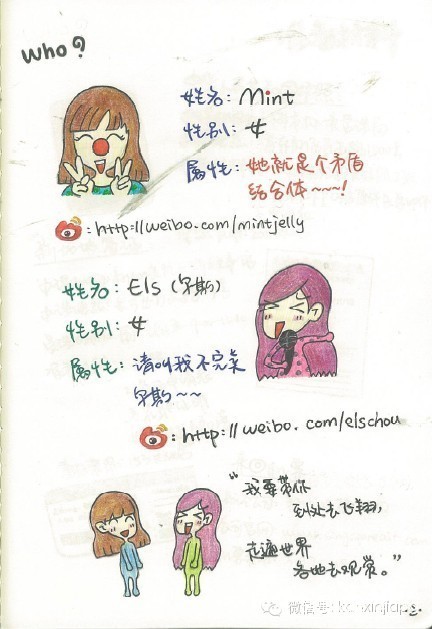 who?
姓名: Mint
性别: 女
属性: 她就是个矛盾
结合体~~~!
: http://weibo.com/mintjelly
姓名: Els
性别: 女
属性: 请叫我不完美
: http://weibo.com/elschou
"我要带你
到处去飞翔,
走遍世界
各地去观赏。"
微信号: